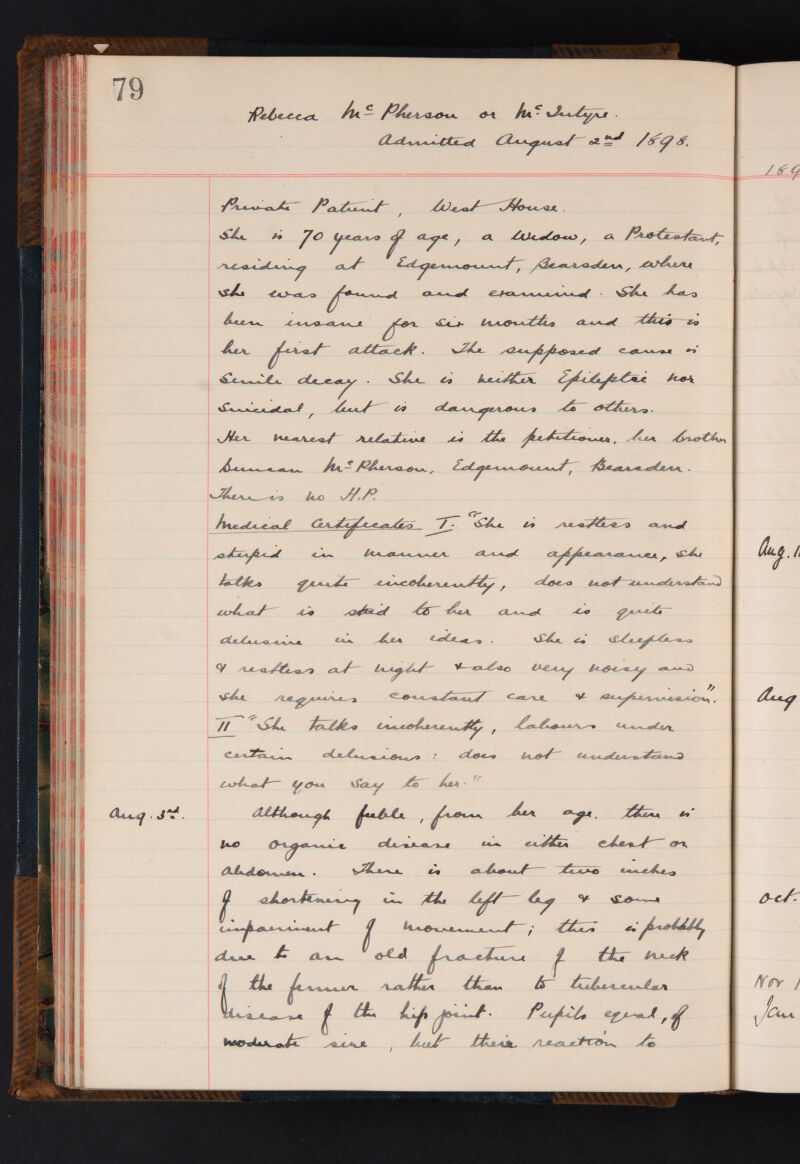 79
Rebecca Mc Pherson or Mc Intyre.
Admitted August 2nd 1898.
189
Private Patient, West House.
She is 70 years of age, a Widow, a Protestant,
residing at Edgemount, Bearsden, where
she was found and examined. She has
been insane for six months and this is
her first attack. The supposed cause is
Senile decay. She is neither Epileptic nor
Suicidal, but is dangerous to others.
Her nearest relative is the petitioner, her brother
Duncan McPherson, Edgemount, Bearsden.
There is no H.P.
Medical Certificates I. "She is restless and
stupid in manner and appearance, she
talks quite incoherently, does not understand
what is said to her and is quite
delusive in her ideas. She is sleepless
& restless at night & also very noisy and
she requires constant care & supervision".
II "She talks incoherently, labours under
certain delusions: does not understand
what you say to her."
Aug. 3rd. Although feeble, from her age, there is
no organic disease in either chest or
abdomen. There is about two inches
of shortening in the left leg & some
impairment of movement; this is probably
due to an old fracture of the neck
of the femur rather than to tubercular
disease of the hip joint. Pupils equal, of
moderate size, but their reaction to
Aug. 1
Aug
Oct.
Nov 1
Jan